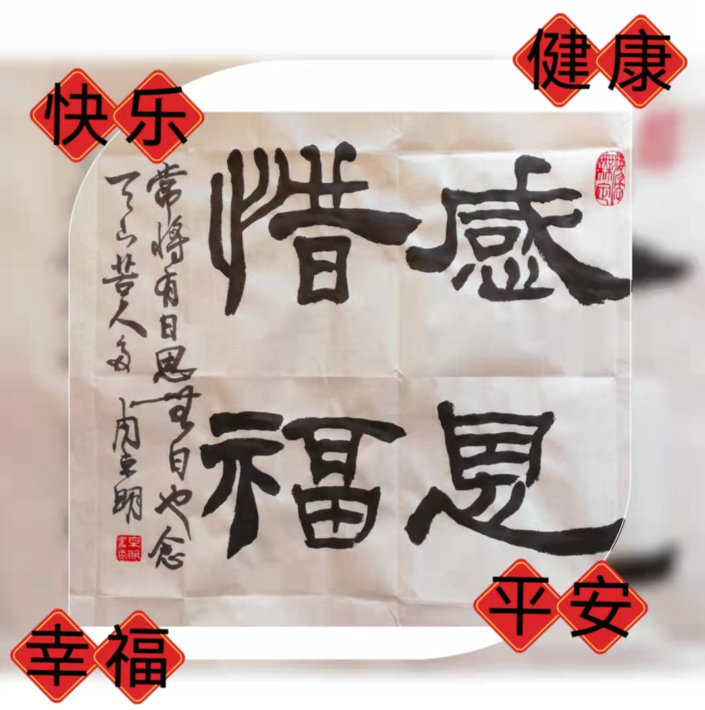 快乐
健康
感恩
惜福
常将有日思无日也念
天下苦人多 周立明
幸福
平安